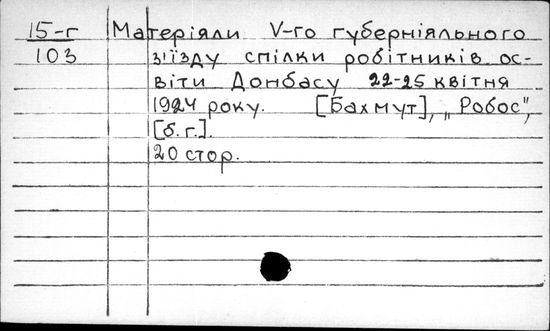 15-г Матеріяли V-го губерніяльного
103 з'їзду спілки робітників ос-
віти Донбасу 22-25 квітня
1924 року. [Бахмут], „Робос",
[б.г.].
20 стор.